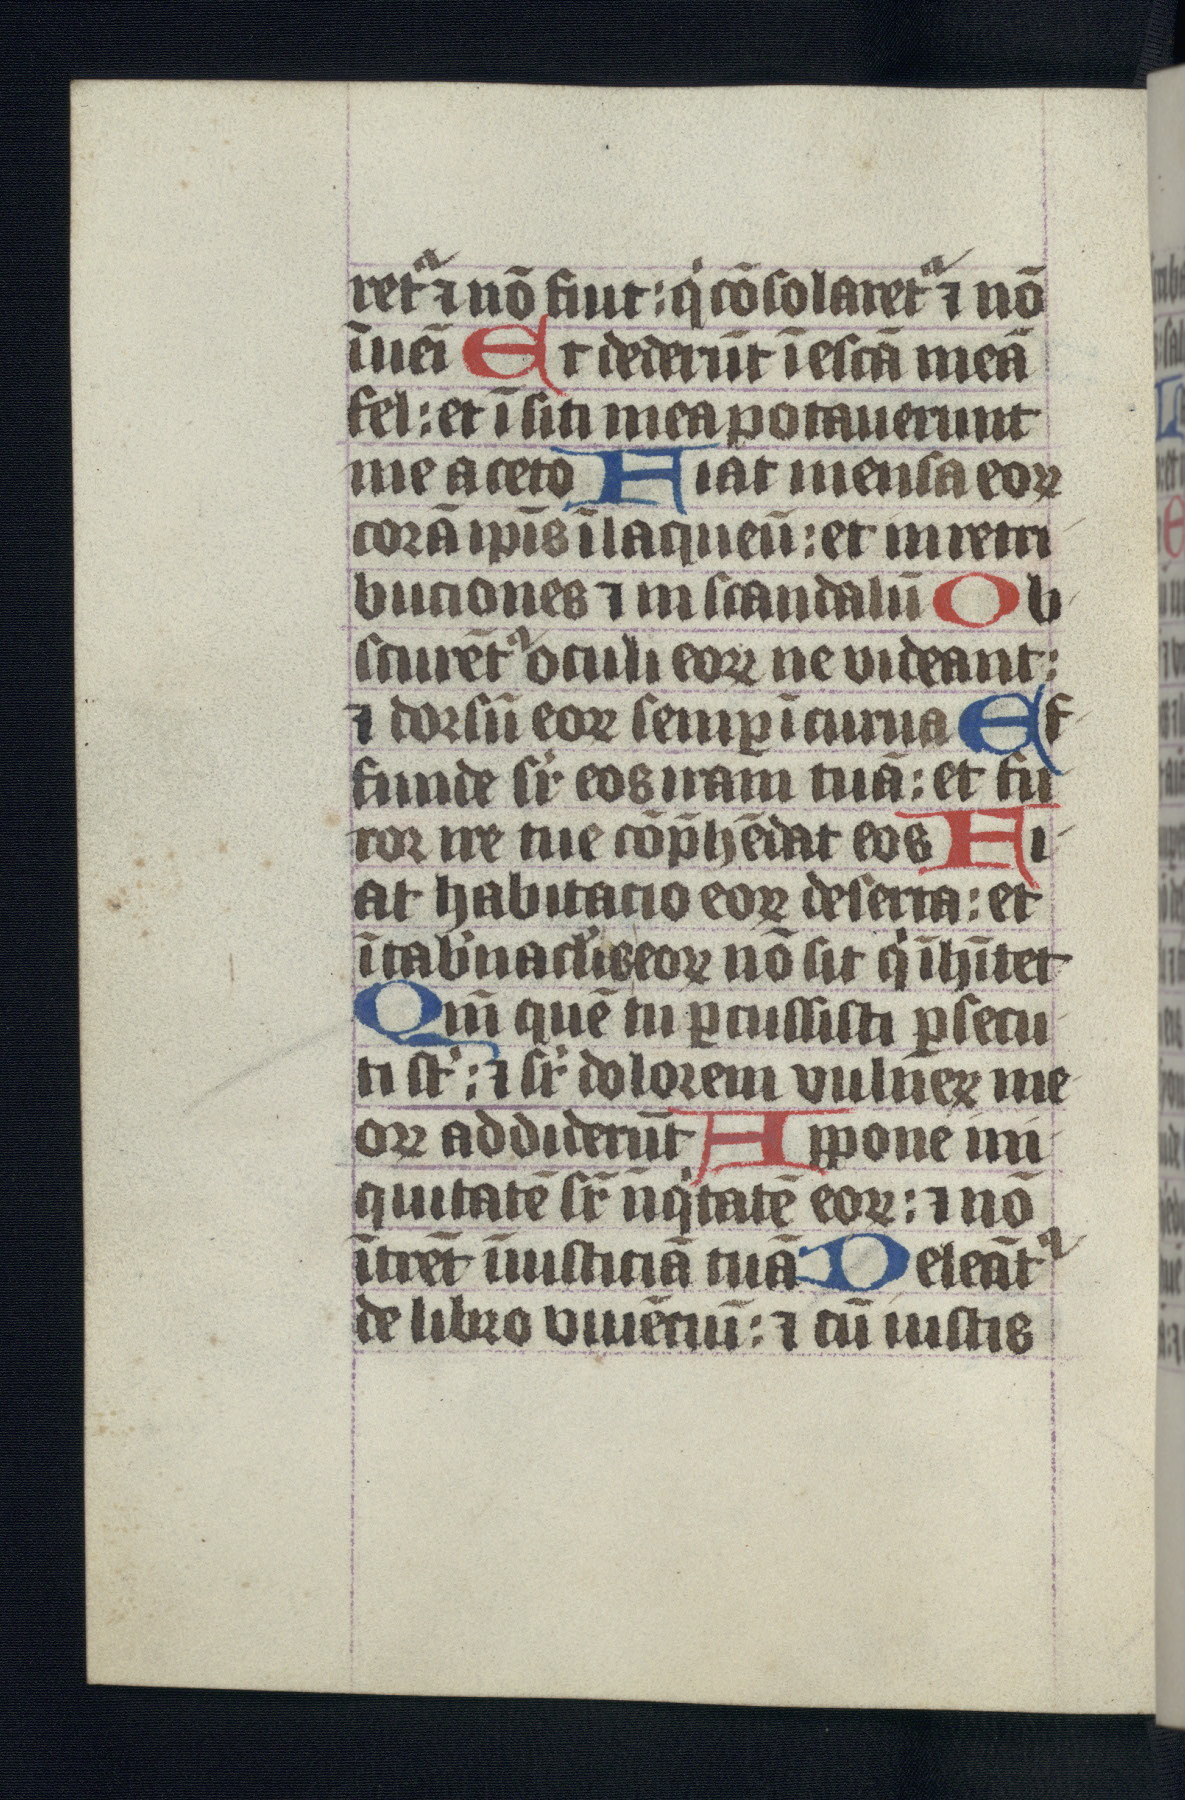 retᷓ ⁊ nō fuit: qͥ cōsolaretᷓ ⁊ nō
īuēi Et dederūt ī escā meā
fel: et ī siti mea potauerunt
me aceto Fiat mensa eoꝝ
corā ip̄is ī laqueū: et in retri
buciones ⁊ in scandalū Ob
scurēt᷑ oculi eoꝝ ne videant:
⁊ dorsū eoꝝ semꝑ īcurua Ef
funde sr̄ eos iram tuā: et fu
ror ire tue cōp̄hēdat eos Fi
at habitacio eoꝝ deserta: et
ī tab̄nacl̄is eoꝝ nō sit qͥ īhītet
Qm̄ quē tu ꝑcussisti ꝑsecu
ti st̄: ⁊ sr̄ dolorem vulneꝝ me
oꝝ addiderūt Appone ini
quitatē sr̄ īiqͥtatē eoꝝ: ⁊ nō
ītrēt ī iusticiā tuā Deleāt᷑
de libro viuēciū: ⁊ cū iustis